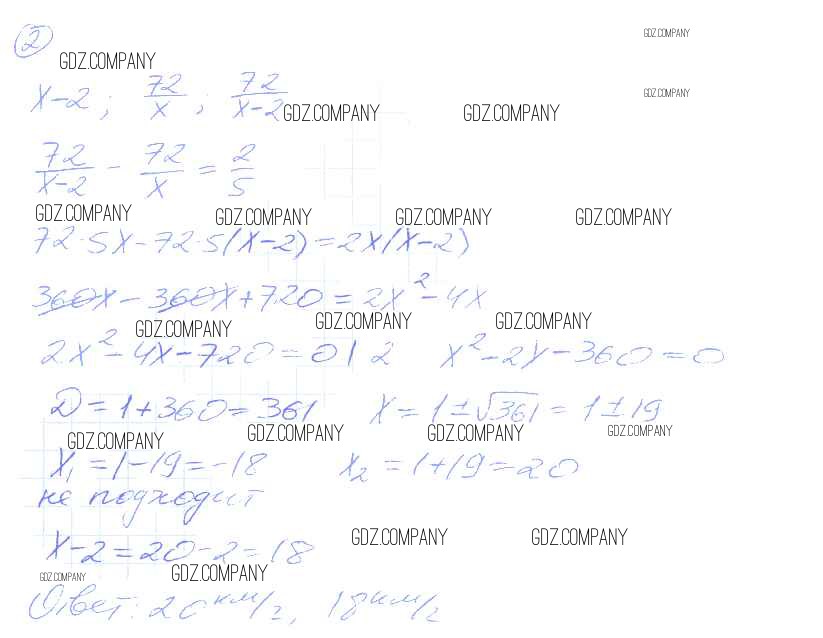 ②
GDZ.COMPANY
GDZ.COMPANY
x-2; 72/x; 72/(x-2)
GDZ.COMPANY GDZ.COMPANY GDZ.COMPANY
72/(x-2) - 72/x = 2/5
GDZ.COMPANY GDZ.COMPANY GDZ.COMPANY GDZ.COMPANY
72·5x-72·5(x-2)=2x(x-2)
360x-360x+720=2x²-4x
GDZ.COMPANY GDZ.COMPANY GDZ.COMPANY
2x²-4x-720=0|2 x²-2x-360=0
D=1+360=361 x=1±√361=1±19
GDZ.COMPANY GDZ.COMPANY GDZ.COMPANY GDZ.COMPANY
x₁=1-19=-18 x₂=1+19=20
не подходит
GDZ.COMPANY GDZ.COMPANY
x-2=20-2=18
GDZ.COMPANY GDZ.COMPANY
Ответ: 20 км/г, 18 км/г